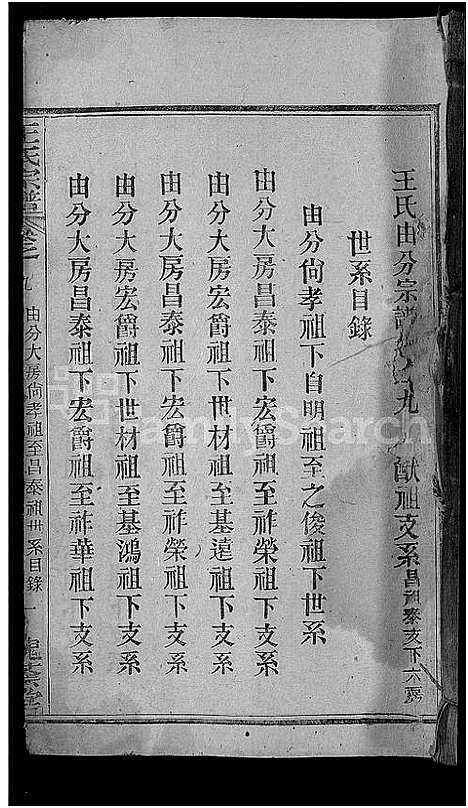 王氏由分宗譜卷之九 猷祖支系昌祖泰支下六房
世系目錄
由分尙孝祖下自明祖至之俊祖下世系
由分大房昌泰祖下宏爵祖至祚榮祖下支系
由分大房宏爵祖下世材祖至基遠祖下支系
由分大房昌泰祖下宏爵祖至祚榮祖下支系
由分大房宏爵祖下世材祖至基鴻祖下支系
由分大房昌泰祖下宏爵祖至祚華祖下支系
王氏宗譜 卷之九 由分大房尙孝祖至昌泰祖世系目錄 一 槐蔭堂
FamilySearch